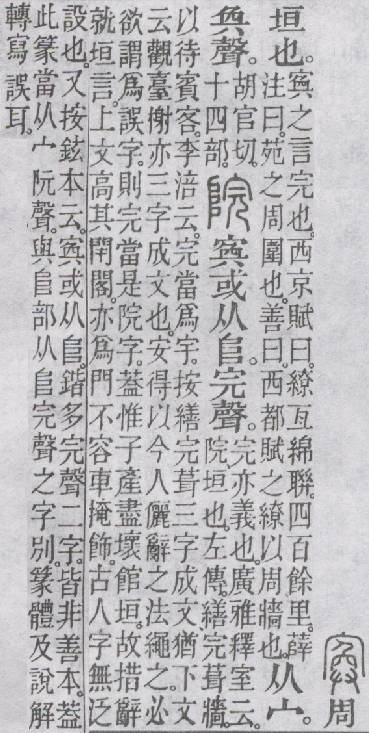 寏周
垣也。寏之言完也。西京賦曰。繚亙綿聯。四百餘里。薛
注曰。苑之周圍也。善曰。西都賦之繚以周牆也。从宀。
奐聲。胡官切。十四部。院寏或从𨸏。完聲。完亦義也。廣雅釋室云。
院垣也。左傳。繕完葺牆。
以待賓客。李涪云。完當爲宇。按繕完葺三字成文。猶下文
云觀臺榭亦三字成文也。安得以今人儷辭之法繩之。必
欲謂爲誤字。則完當是院字。葢惟子產盡壞館垣。故措辭
就垣言。上文高其閈閎。亦爲門不容車掩飾。古人字無泛
設也。又按鉉本云。寏或从𨸏。鍇多完聲二字。皆非善本。葢
此篆當从宀阮聲。與𨸏部从𨸏完聲之字別。篆體及說解
轉寫誤耳。